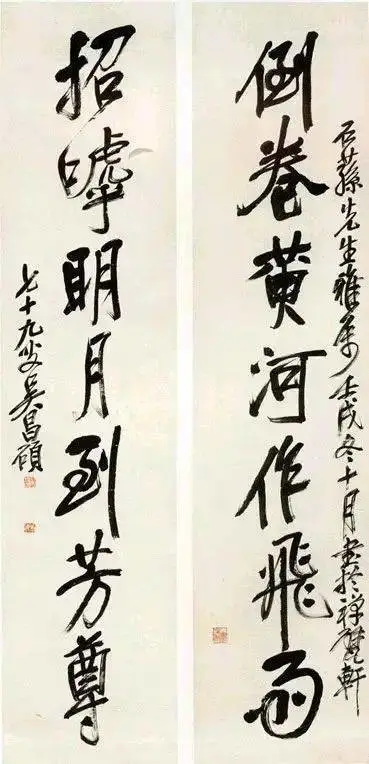 石蓀先生雅屬 壬戌冬十月書於禪甓軒
倒卷黃河作飛雨
招嘑明月到芳尊
七十九叟吳昌碩